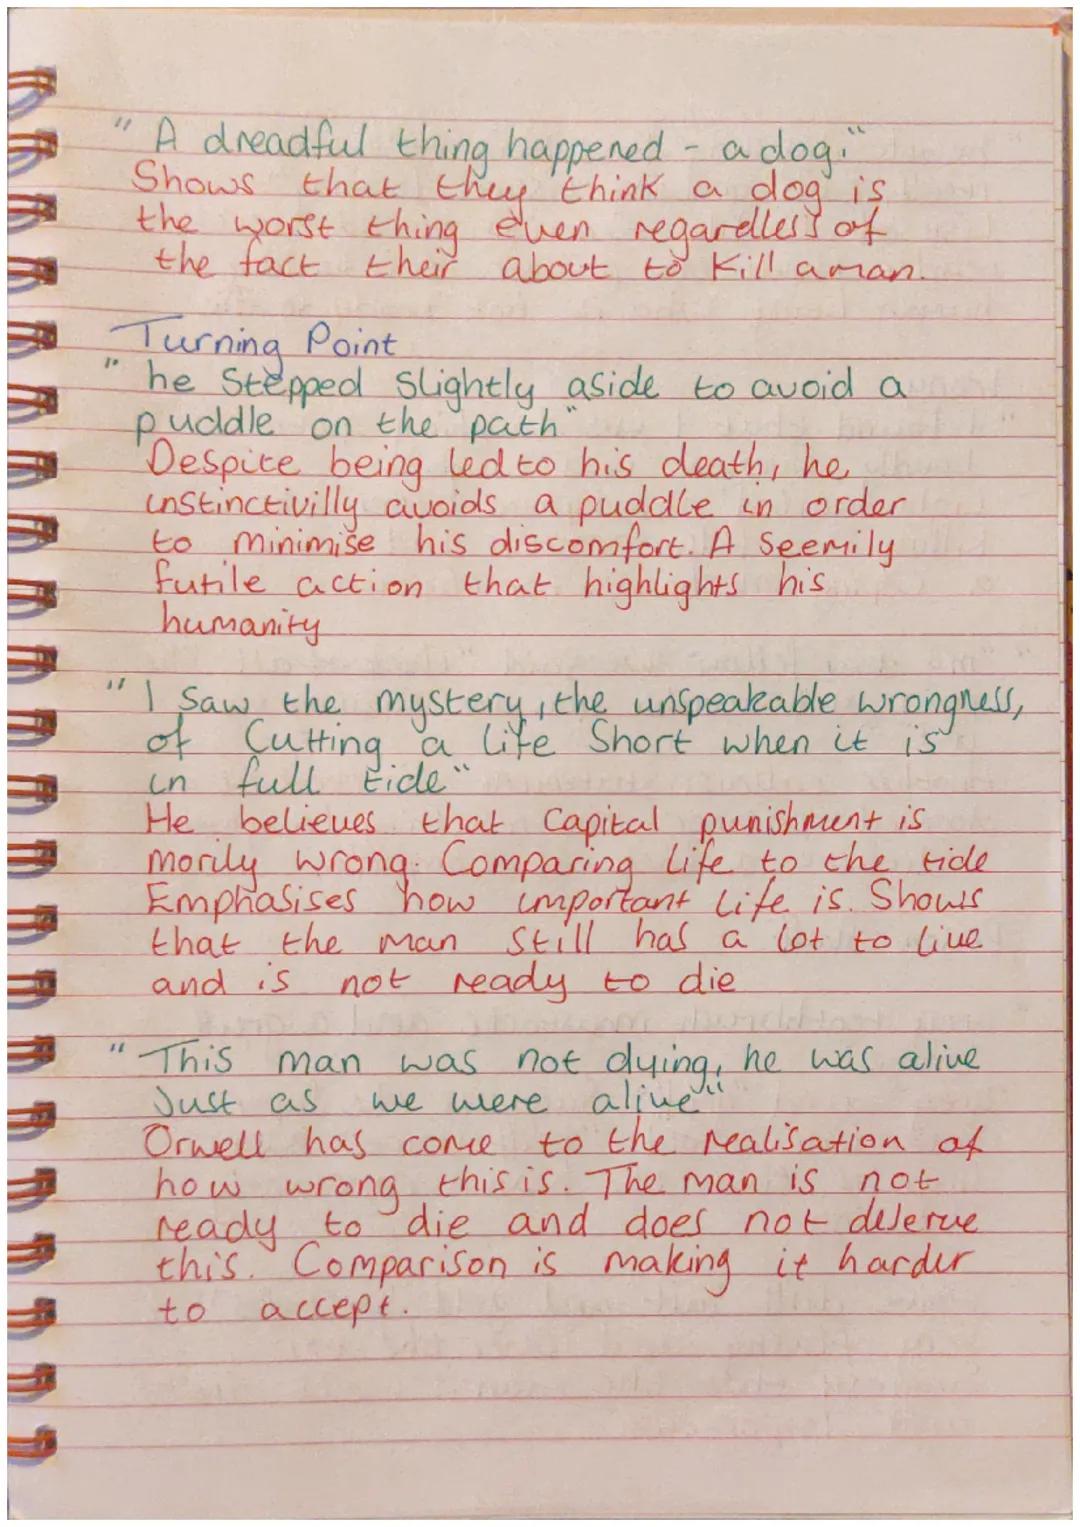 " A dreadful thing happened - a dog."
Shows that they think a dog is
the worst thing even regardless of
the fact their about to kill a man.
Turning Point
" he Stepped slightly aside to avoid a
puddle on the path"
Despite being led to his death, he
instinctivilly avoids a puddle in order
to minimise his discomfort. A Seemily
futile action that highlights his
humanity
" I saw the mystery, the unspeakable wrongness,
of Cutting a life Short when it is
in full tide"
He believes that Capital punishment is
morily wrong. Comparing life to the tide
Emphasises how important life is. Shows
that the man still has a lot to live
and is not ready to die
" This man was not dying, he was alive
Just as we were alive"
Orwell has come to the realisation of
how wrong this is. The man is not
ready to die and does not deserve
this. Comparison is making it harder
to accept.